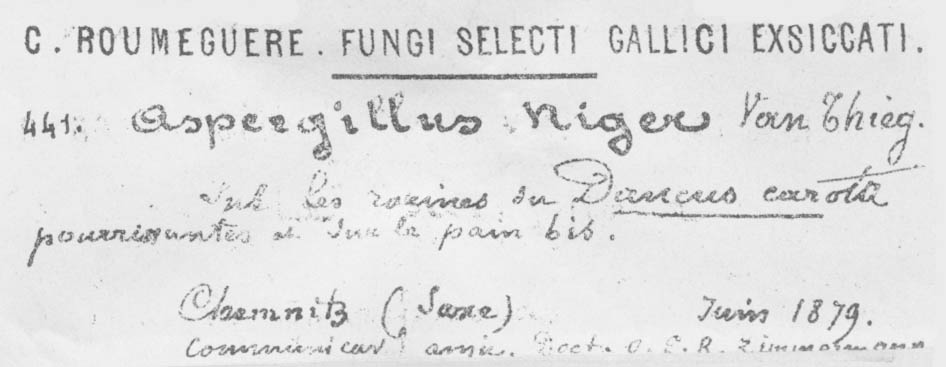 C. ROUMEGUERE. FUNGI SELECTI GALLICI EXSICCATI.
441. Aspergillus Niger Van Thieg.
Sur les racines du Daucus carota
pourrissantes et sur le pain bis.
Chemnitz (Saxe) Juin 1879.
Communicav. amic. Doct. O. E. R. Zimmermann